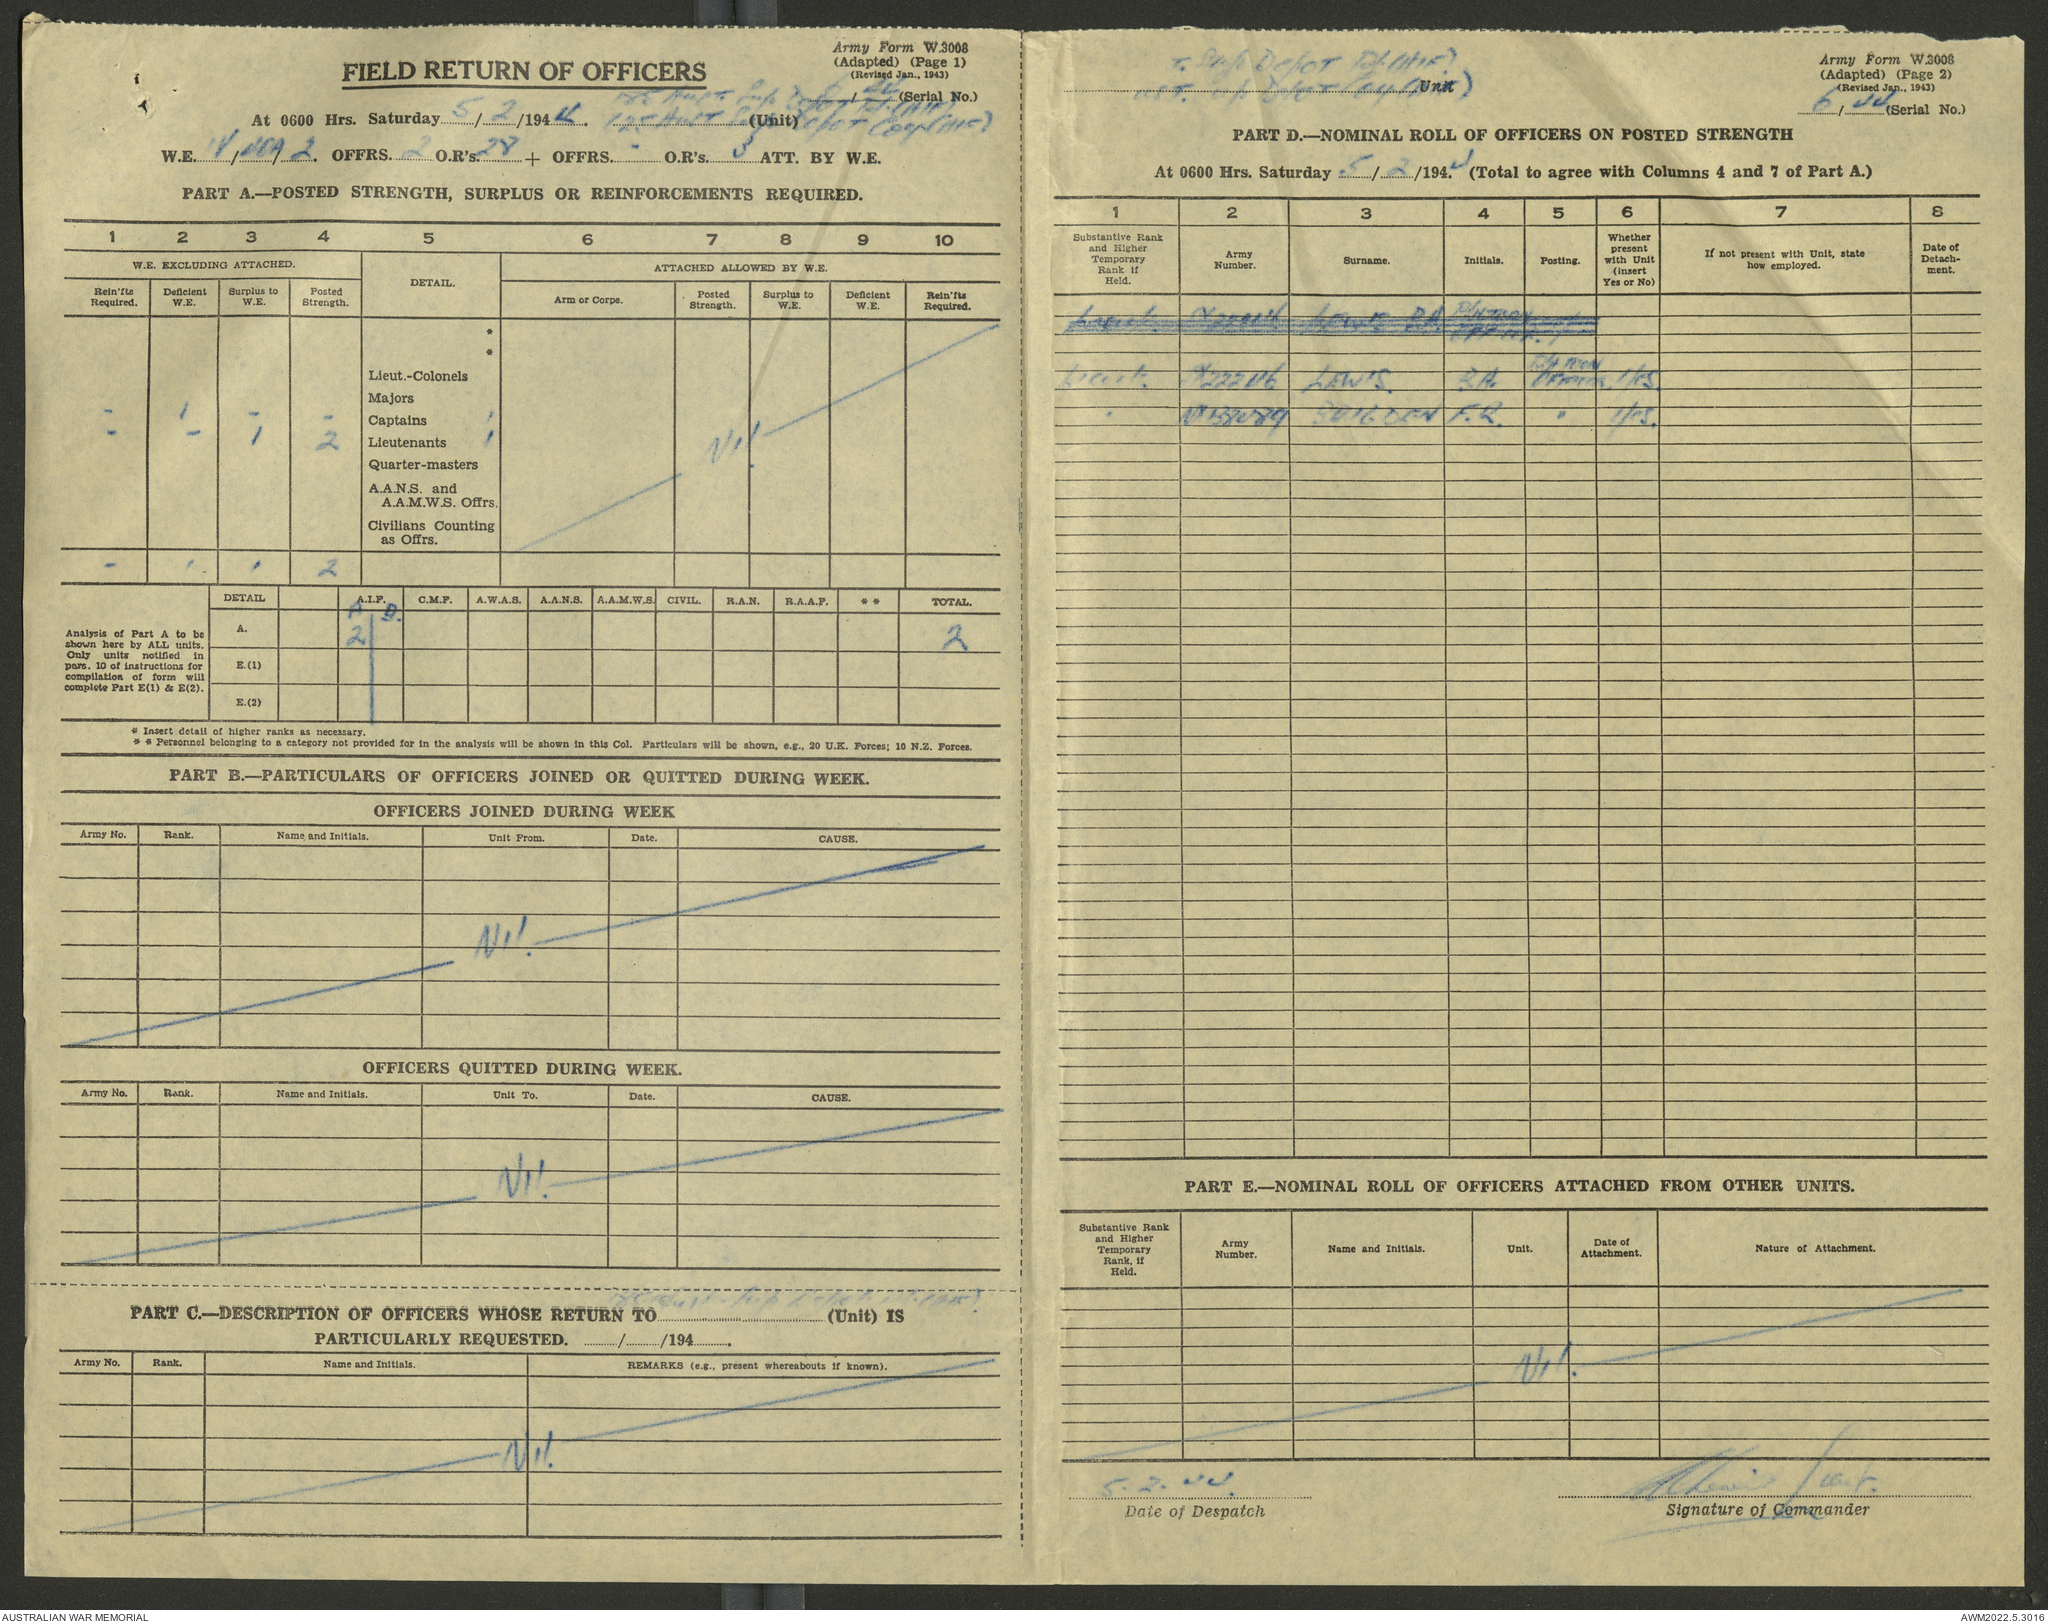 Army Form W.3008
(Adapted) (Page 1)
(Revised Jan., 1943)
FIELD RETURN OF OFFICERS
(Serial No.)
At 0600 Hrs. Saturday 5/2/1944 (Unit)
W.E. / / 2. OFFRS. 2 O.R's. 28 + OFFRS. - O.R's. 3 ATT. BY W.E.
PART A.—POSTED STRENGTH, SURPLUS OR REINFORCEMENTS REQUIRED.
1 2 3 4 5 6 7 8 9 10
W.E. EXCLUDING ATTACHED. DETAIL. ATTACHED ALLOWED BY W.E.
Rein'fts Required. Deficient W.E. Surplus to W.E. Posted Strength. Arm or Corps. Posted Strength. Surplus to W.E. Deficient W.E. Rein'fts Required.
*
*
Lieut.-Colonels
Majors
- 1 - - Captains 1
- - 1 2 Lieutenants 1
Nil
Quarter-masters
A.A.N.S. and
A.A.M.W.S. Offrs.
Civilians Counting
as Offrs.
- 1 1 2
DETAIL A.I.F. C.M.F. A.W.A.S. A.A.N.S. A.A.M.W.S. CIVIL. R.A.N. R.A.A.F. ** TOTAL.
Analysis of Part A to be
shown here by ALL units.
Only units notified in
para. 10 of instructions for
compilation of form will
complete Part E(1) & E(2).
A. 2 2
E.(1)
E.(2)
* Insert detail of higher ranks as necessary.
* * Personnel belonging to a category not provided for in the analysis will be shown in this Col. Particulars will be shown, e.g., 20 U.K. Forces; 10 N.Z. Forces.
PART B.—PARTICULARS OF OFFICERS JOINED OR QUITTED DURING WEEK.
OFFICERS JOINED DURING WEEK
Army No. Rank. Name and Initials. Unit From. Date. CAUSE.
Nil.
OFFICERS QUITTED DURING WEEK.
Army No. Rank. Name and Initials. Unit To. Date. CAUSE.
Nil.
PART C.—DESCRIPTION OF OFFICERS WHOSE RETURN TO (Unit) IS
PARTICULARLY REQUESTED. / /194 .
Army No. Rank. Name and Initials. REMARKS (e.g., present whereabouts if known).
Nil.
Army Form W.3008
(Adapted) (Page 2)
(Revised Jan., 1943)
Unit
6/44 (Serial No.)
PART D.—NOMINAL ROLL OF OFFICERS ON POSTED STRENGTH
At 0600 Hrs. Saturday 5/2/1944 (Total to agree with Columns 4 and 7 of Part A.)
1 2 3 4 5 6 7 8
Substantive Rank and Higher Temporary Rank if Held. Army Number. Surname. Initials. Posting. Whether present with Unit (insert Yes or No) If not present with Unit, state how employed. Date of Detachment.
Lieut. LEWIS
Lieut. LEWIS. Yes.
F.R. " Yes.
PART E.—NOMINAL ROLL OF OFFICERS ATTACHED FROM OTHER UNITS.
Substantive Rank and Higher Temporary Rank, if Held. Army Number. Name and Initials. Unit. Date of Attachment. Nature of Attachment.
Nil.
5.2.44. Lieut.
Date of Despatch Signature of Commander
AUSTRALIAN WAR MEMORIAL AWM2022.5.3016